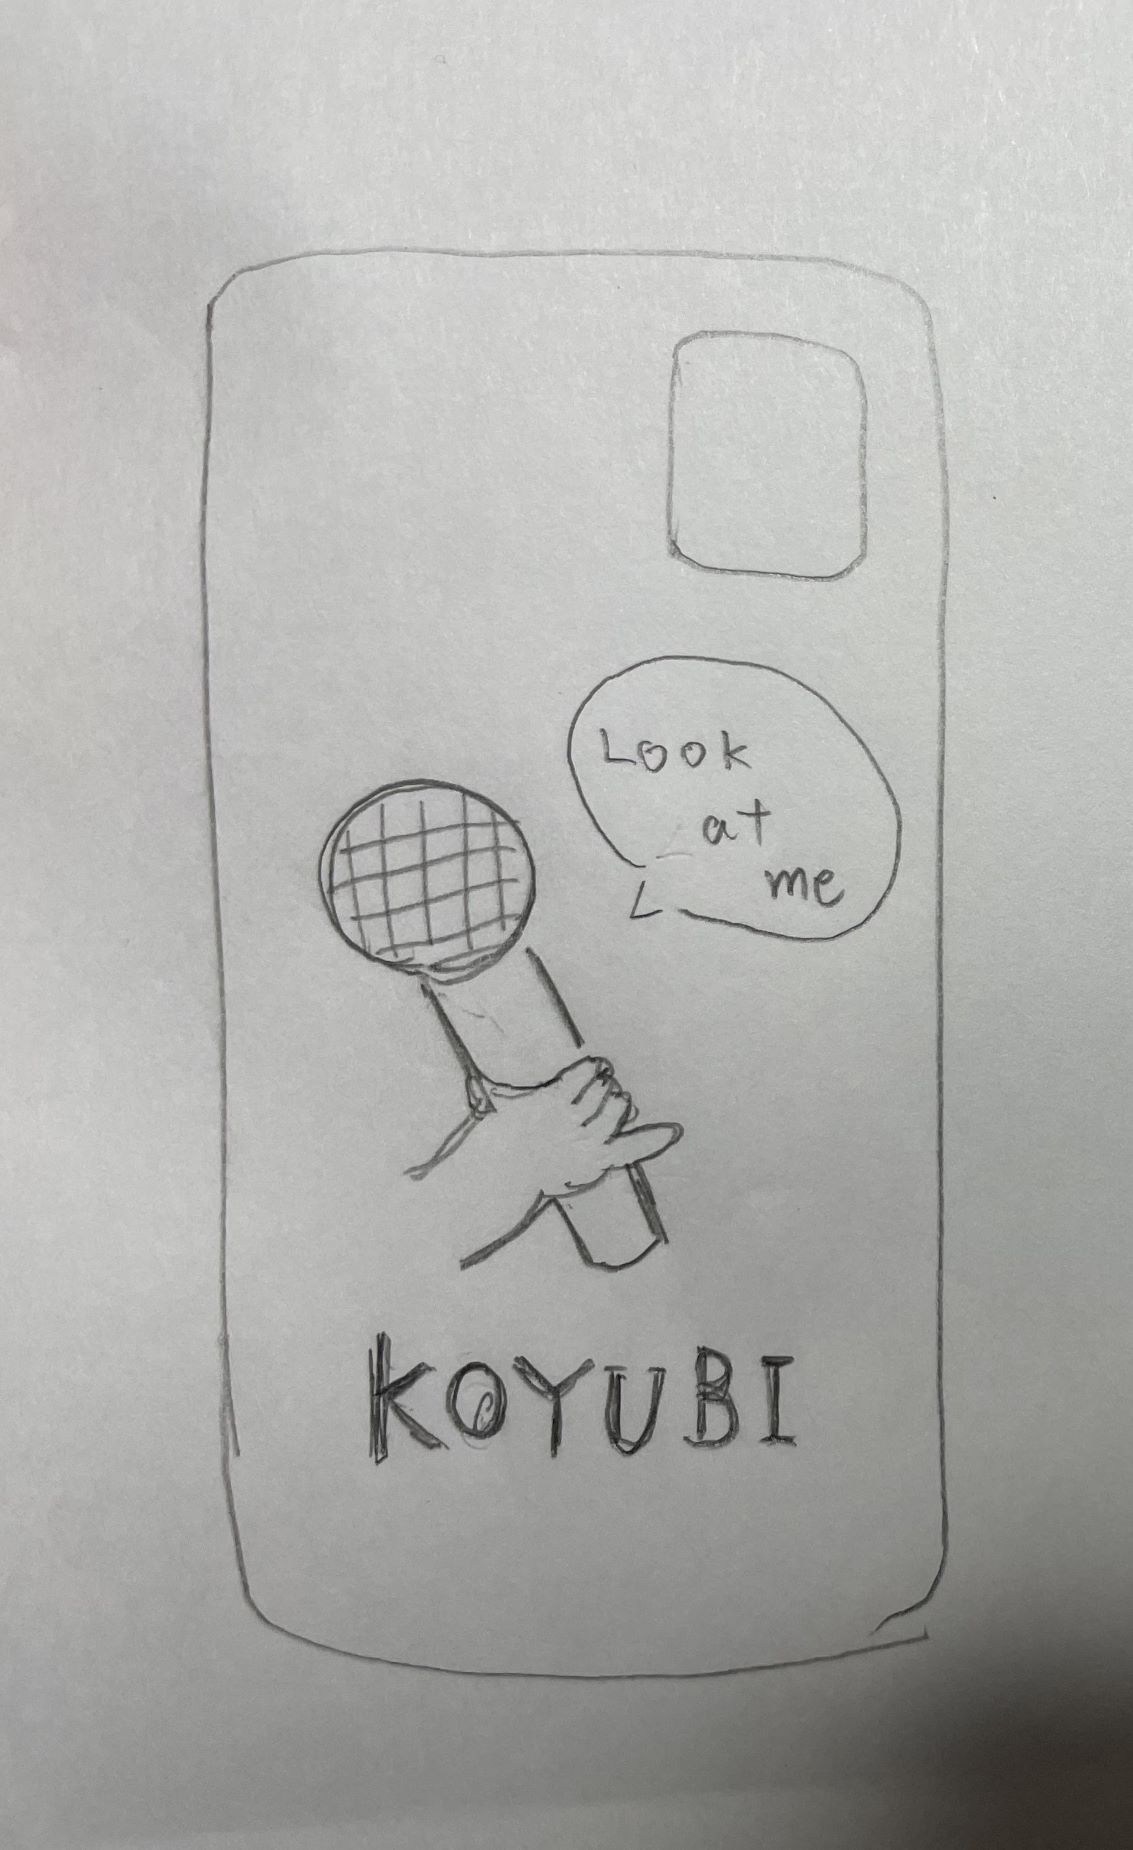 Look
at
me
KOYUBI